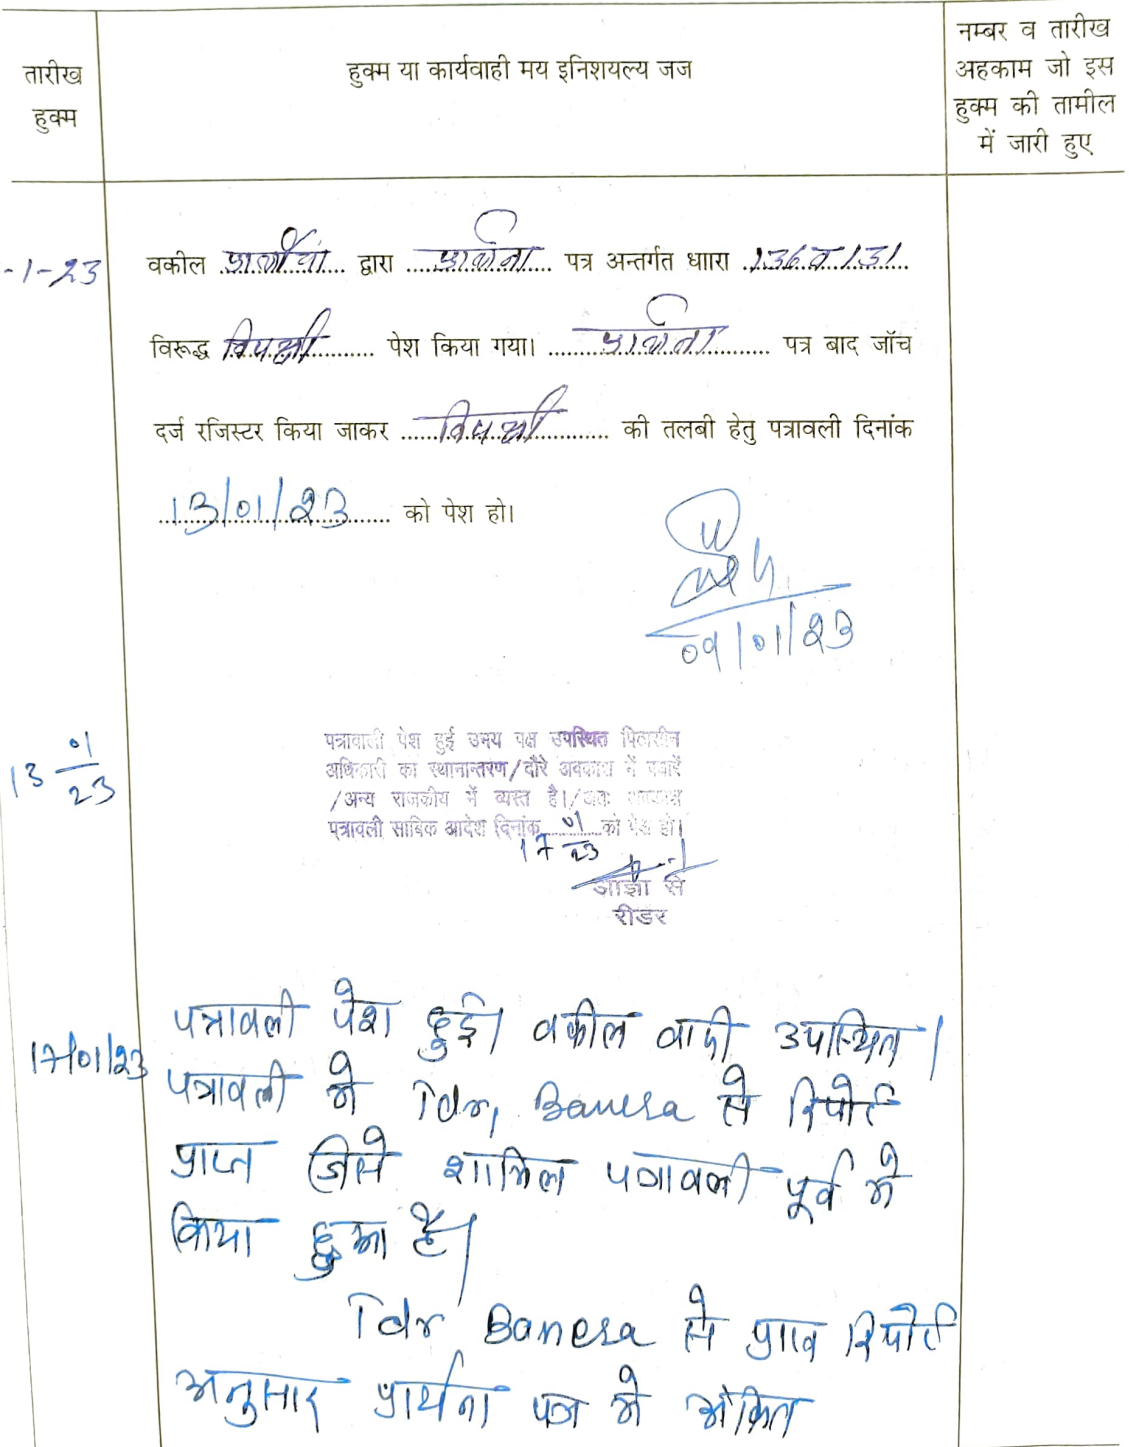 तारीख
हुक्म
हुक्म या कार्यवाही मय इनिशयल्य जज
नम्बर व तारीख
अहकाम जो इस
हुक्म की तामील
में जारी हुए
-1-23
वकील प्रार्थीया द्वारा प्रार्थना पत्र अन्तर्गत धाारा 136 व 131
विरूद्ध विपक्षी पेश किया गया। प्रार्थना पत्र बाद जॉच
दर्ज रजिस्टर किया जाकर विपक्षी की तलबी हेतु पत्रावली दिनांक
13/01/23 को पेश हो।
09/01/23
13 01/23
पत्रावाली पेश हुई उभय पक्ष उपस्थित पिठासीन
अधिकारी का स्थानान्तरण/दौरे अवकाश में पधारें
/अन्य राजकीय में व्यस्त है।/अतः
पत्रावली साबिक आदेश दिनांक 17 01/23 को पेश हो।
आज्ञा से
रीडर
17/01/23
पत्रावली पेश हुई। वकील वादी उपस्थित।
पत्रावली मे Tdr, Banera से रिपोर्ट
प्राप्त जिसे शामिल पत्रावली पूर्व मे
किया हुआ है।
Tdr Banera से प्राप्त रिपोर्ट
अनुसार प्रार्थना पत्र मे अंकित